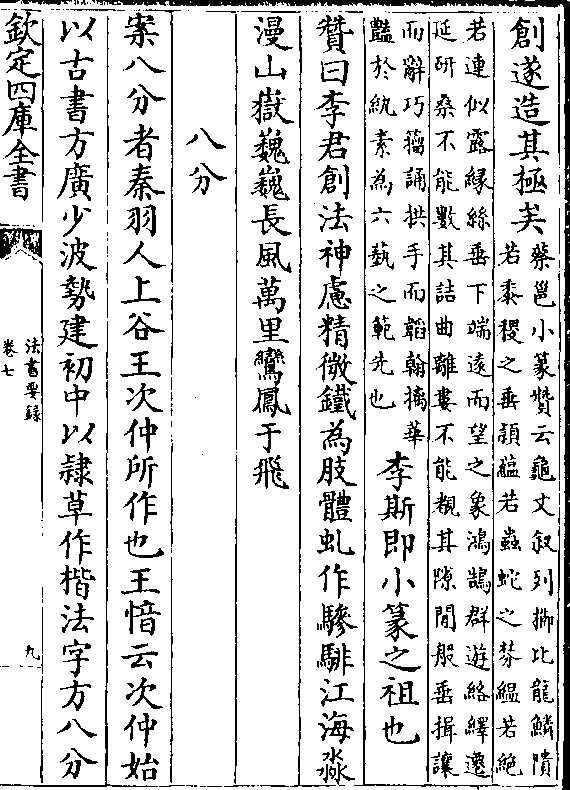 創遂造其極矣
蔡邕小篆贊云龜文叙列櫛比龍鱗隤
若黍稷之垂頴藴若蟲蛇之棼緼若絶
若連似露緣絲垂下端遠而望之象鴻鵠群遊絡繹遷
延研桑不能數其詰曲離婁不能覩其隙間般垂揖讓
而辭巧籀誦拱手而韜翰摛華
豔於紈素為六藝之範先也
李斯即小篆之祖也
贊曰李君創法神慮精微鐵為肢體虬作驂騑江海淼
漫山嶽巍巍長風萬里鸞鳳于飛
八分
案八分者秦羽人上谷王次仲所作也王愔云次仲始
以古書方廣少波勢建初中以隸草作楷法字方八分
欽定四庫全書
法書要録
卷七
九